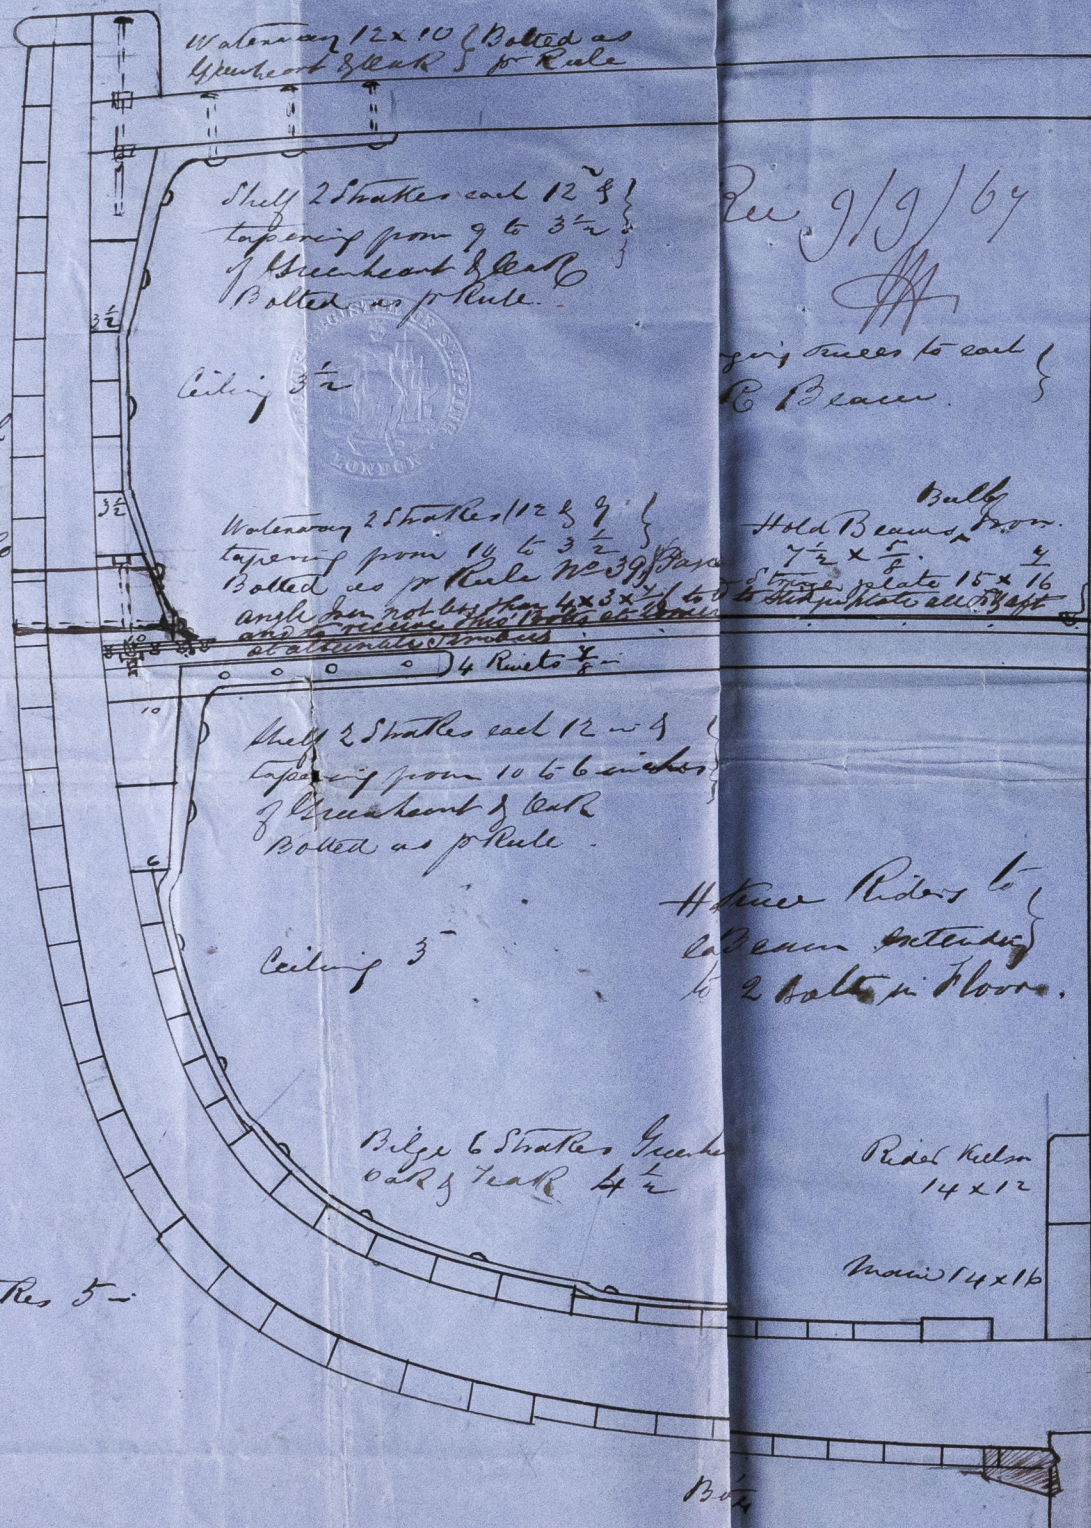 Waterway 12 x 10 { Bolted as
Greenheart & Oak } pr Rule
Shelf 2 Strakes each 12 &
tapering from 9 to 3 1/2
of Greenheart & Oak
Bolted as pr Rule.
Rec 9/9/67
3 1/2
REGISTER OF SHIPPING
LONDON
Ceiling 3 1/2
knees to each
Beam.
3 1/2
Waterway 2 Strakes / 12 & 9
tapering from 10 to 3 1/2
Bolted as pr Rule No 39
angle Iron not less than 4 x 3 x
and to receive
at alternate
Bulb
Hold Beams, Iron.
7 1/2 x 5/8
plate 15 x
plate all aft
4 Rivets 7/8 in
10
Shelf 2 Strakes each 12 in &
tapering from 10 to 6 inches
of Greenheart & Oak
Bolted as pr Rule.
6
Ceiling 3
Knee Riders to
ea Beam extending
to 2 bolts in Floors.
Bilge 6 Strakes Greenhe
Oak & Teak 4 1/2
Rider Keelson
14 x 12
Main 14 x 16
kes 5 in